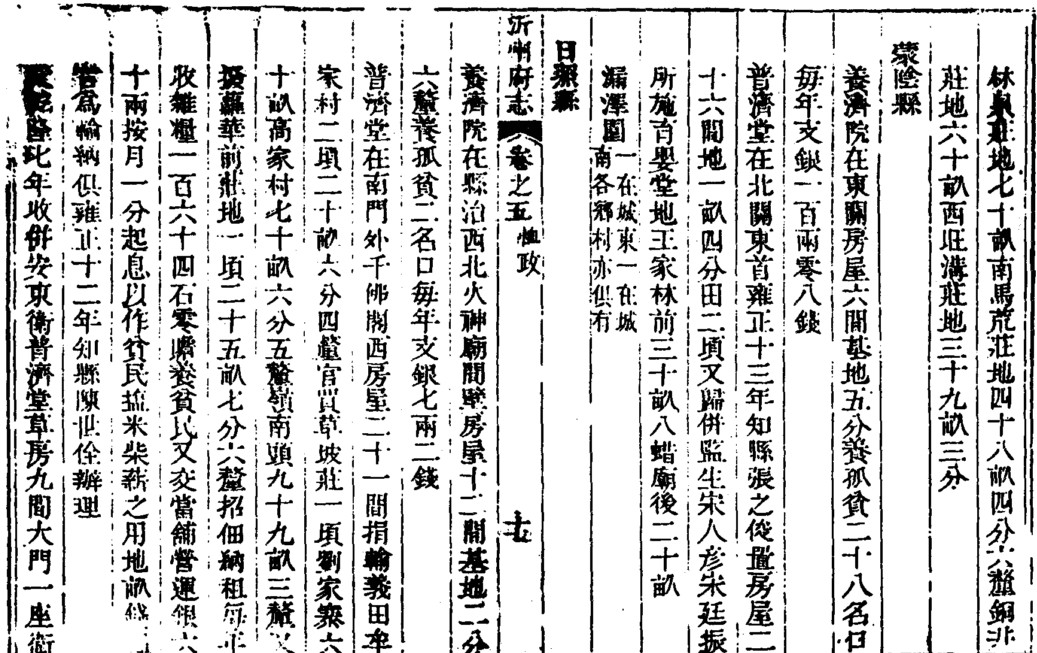 林泉莊地七十畝南馬荒莊地四十八畝四分六釐銅井
莊地六十畝西旺溝莊地三十九畝三分
蒙陰縣
養濟院在東關房屋六間基地五分養孤貧二十八名口
每年支銀一百兩零八錢
普濟堂在北關東首雍正十三年知縣張之俊置房屋二
十六間地一畝四分田二頃又歸併監生宋人彥朱廷振
所施育嬰堂地王家林前三十畝八蜡廟後二十畝
漏澤園一在城東一在城
南各鄉村亦俱有
日照縣
沂州府志 卷之五 恤政 十五
養濟院在縣治西北火神廟間壁房屋十二間基地二分
六釐養孤貧二名口每年支銀七兩二錢
普濟堂在南門外千佛閣西房屋二十一間捐輸義田牟
家村二頃二十畝六分四釐官買草坡莊一頃劉家寨六
十畝高家村七十畝六分五釐嶺南頭九十九畝三釐
蘿華前莊地一頃二十五畝七分六釐招佃納租每年
收雜糧一百六十四石零贍養貧民又交當舖營運銀六
十兩按月一分起息以作貧民鹽米柴薪之用地畝錢
為輸納俱雍正十二年知縣陳世佺辦理
隆七年收併安東衛普濟堂草房九間大門一座衛